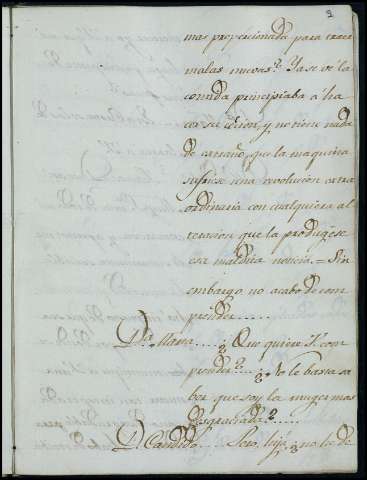 mas proporcionada para traer
malas nuevas? Ya se ve la
comida principiaba a ha
cer su y no tiene nada
de extraño, que la maquina
sufriese una revolucion extra
ordinaria con cualquiera al
teracion que la produgese
esa maldita noticia. = Sin
embargo no acabo de com
prender......
D.ª Maria.....¿ Que quiere V. com
prender? ¿No le basta sa
ber que soy la muger mas
desgraciada?....
D. Candido... Pero, hija ¿no lo de